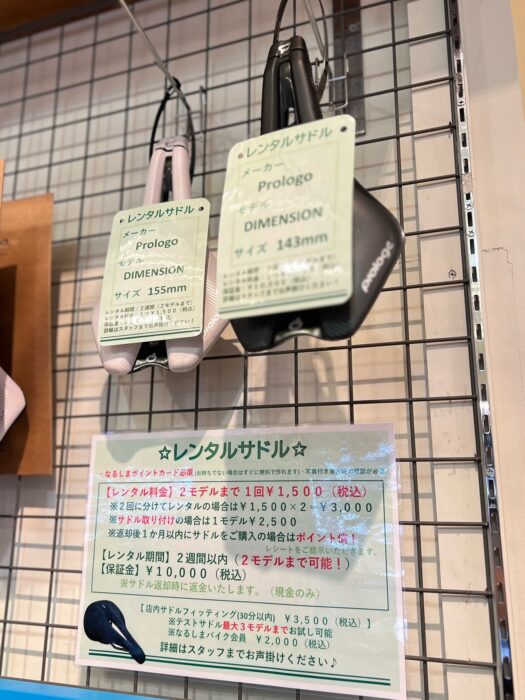 レンタルサドル
メーカー
Prologo
モデル
DIMENSION
サイズ 155mm
レンタル期間：2週間（2モデルまで）
詳細はスタッフまでお声掛けください！
レンタルサドル
メーカー
Prologo
モデル
DIMENSION
サイズ 143mm
詳細はスタッフまでお声掛けください！
prologo
☆レンタルサドル☆
・なるしまポイントカード必須（お持ちでない場合はすぐに無料で作れます）・写真付き身分証の確認が必要
【レンタル料金】2モデルまで 1回￥1,500（税込）
※2回に分けてレンタルの場合は￥1,500×2=￥3,000
※サドル取り付けの場合は1モデル￥2,500
※返却後1か月以内にサドルをご購入の場合はポイント倍！
レシートをご提示いただきます。
【レンタル期間】2週間以内（2モデルまで可能！）
【保証金】￥10,000（税込）
※サドル返却時に返金いたします。（現金のみ）
【店内サドルフィッティング(30分以内) ￥3,500（税込）】
※テストサドル最大3モデルまでお試し可能
※なるしまバイク会員 ￥2,000（税込）
詳細はスタッフまでお声掛けください♪